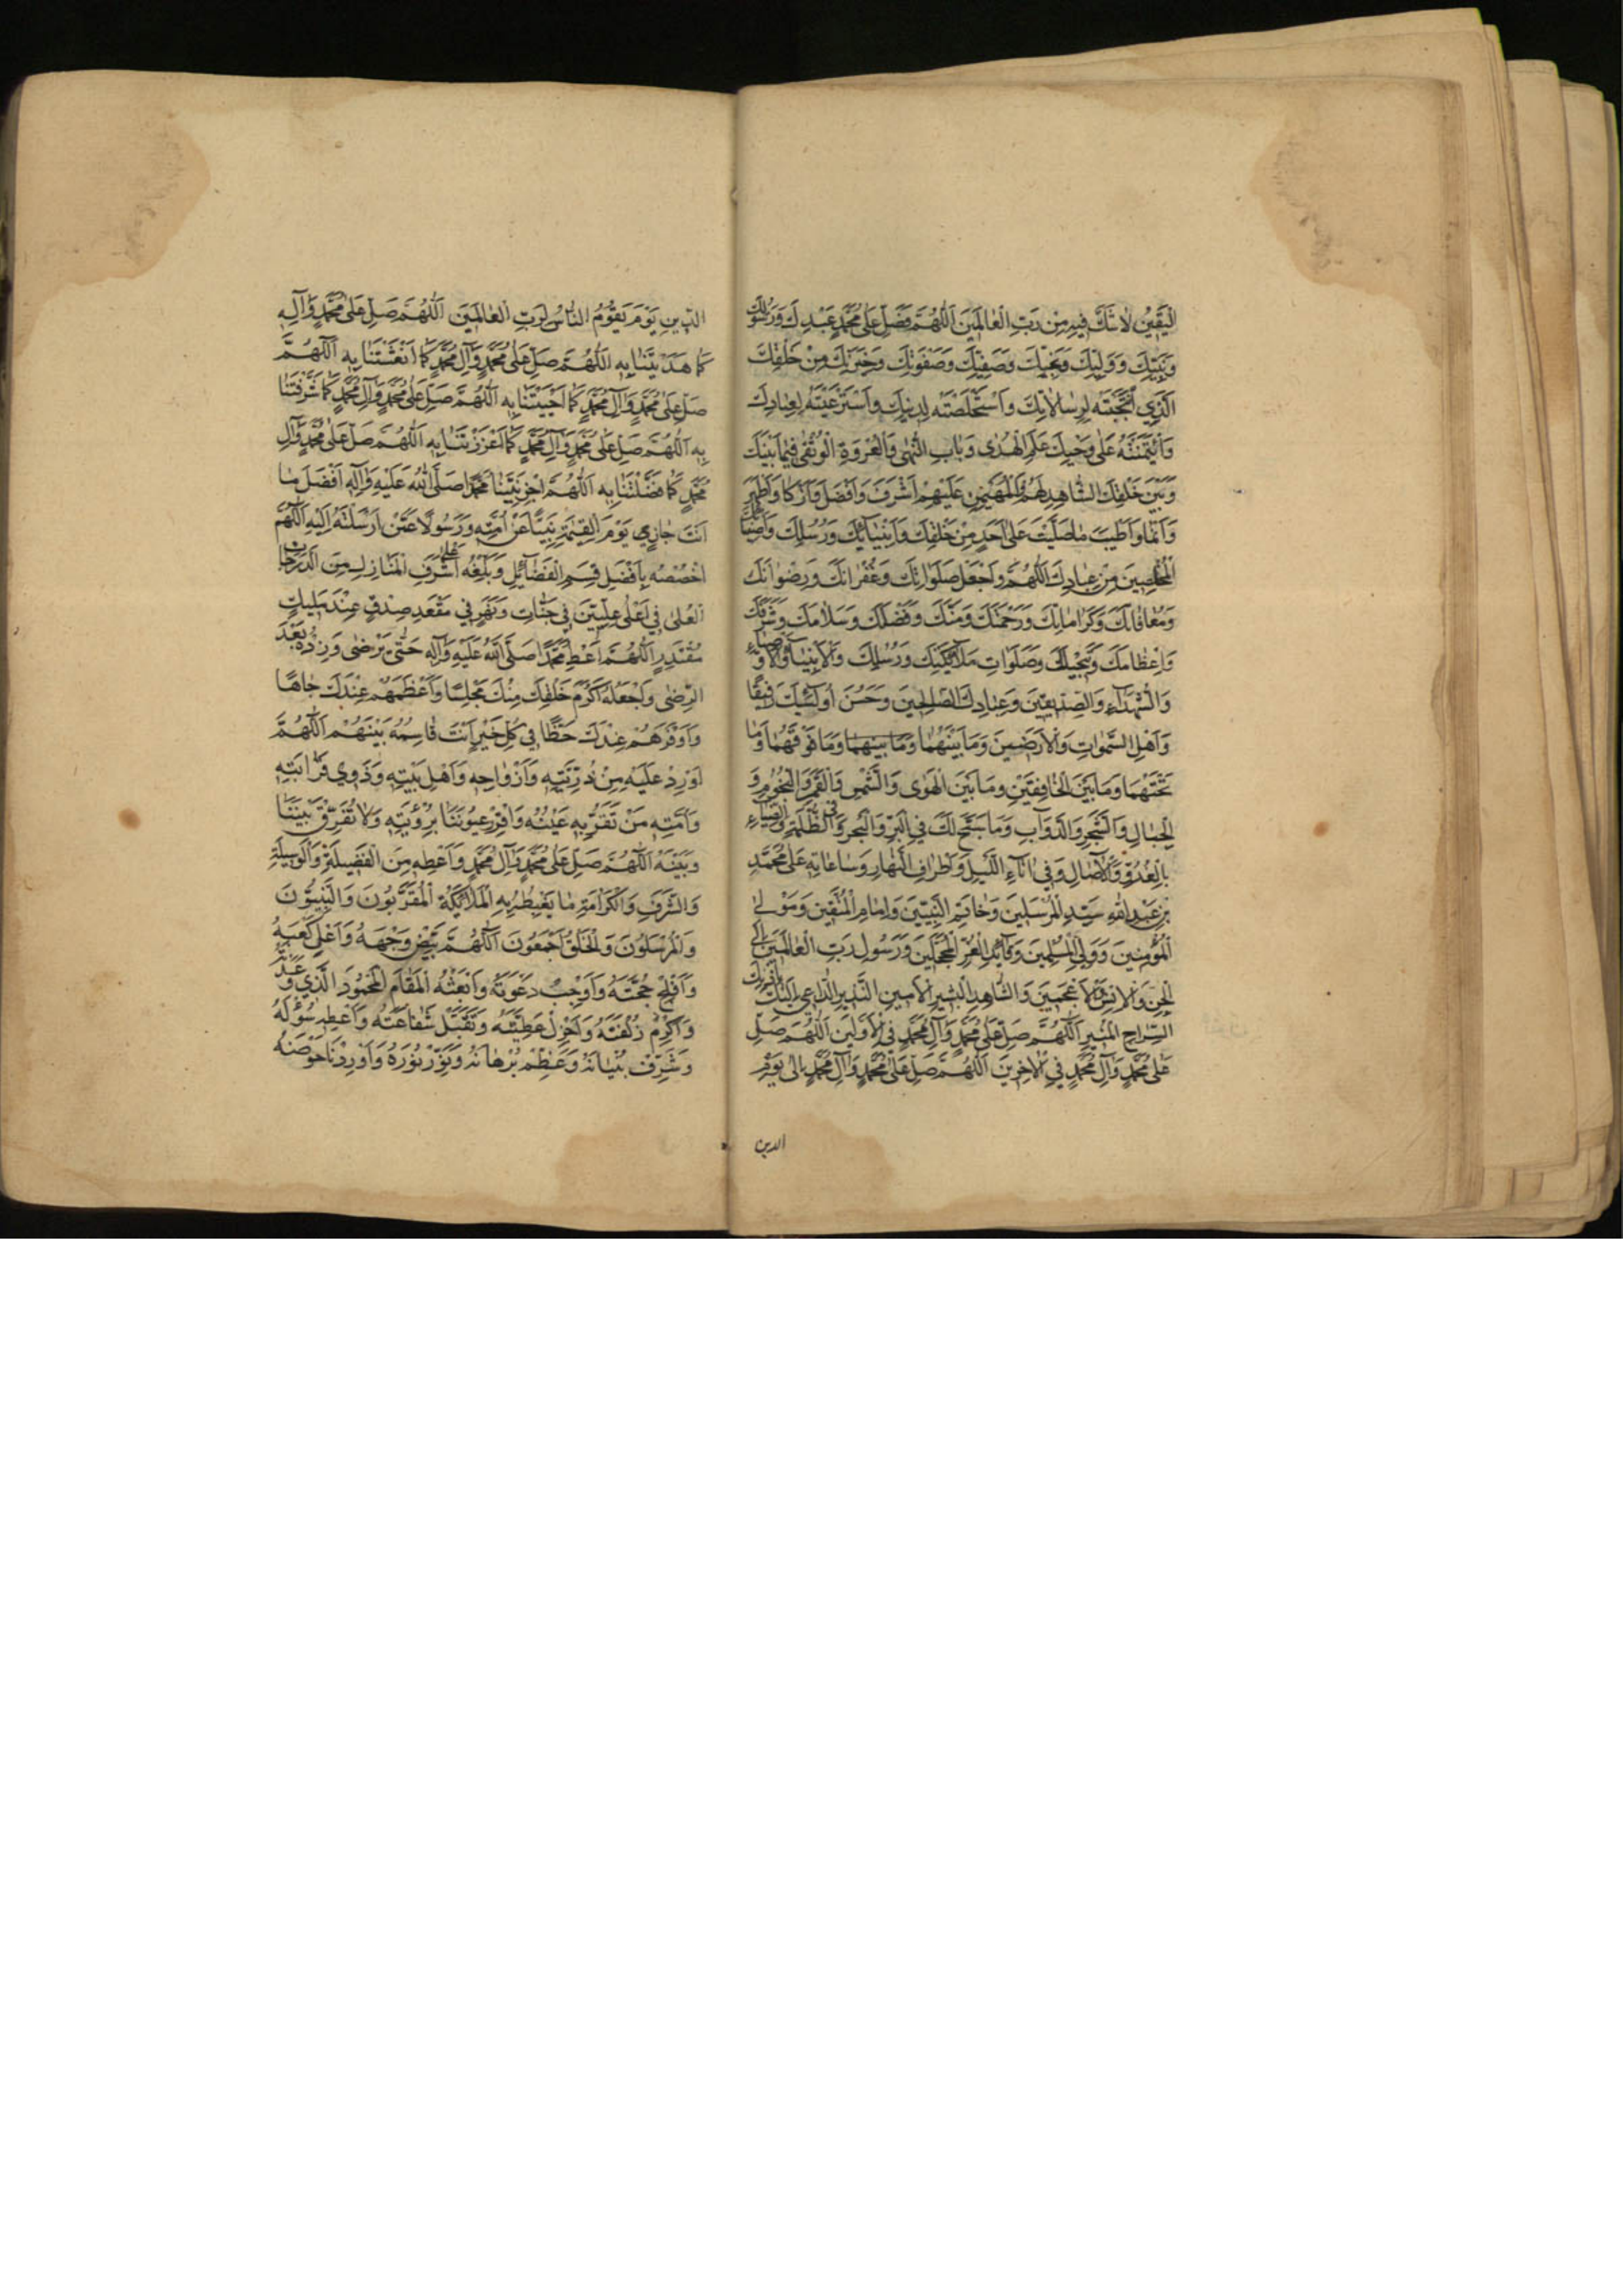 الیقین لا شک فیه من رب العالمین اللهم فصل علی محمد عبدک ورسولک
ونبیک وولیک ونجیک وصفیک وصفوتک وخیرتک من خلقک
الذي انتجبته لرسالاتک واستخلصته لدینک واسترعیته لعبادک
وائتمنته علی وحیک علم الهدی وباب النهی والعروة الوثقی فیما بینک
وبین خلقک الشاهد لهم المهیمن علیهم اشرف وافضل وازکا واطهر
وانما واطیب ما صلیت علی احد من خلقک وانبیائک ورسلک واصفیائک
المخلصین من عبادک اللهم واجعل صلواتک وغفرانک ورضوانک
ومعافاتک وکراماتک ورحمتک ومنک وفضلک وسلامک وشرفک
واعظامک وتبجیلک وصلوات ملائکتک ورسلک والانبیاء والاوصیاء
والشهداء والصدیقین وعبادک الصالحین وحسن اولئک رفیقا
واهل السموات والارضین وما بینهما وما بینهما وما فوقهما وما
تحتهما وما بین الخافقین وما بین الهوی والشمس والقمر والنجوم و
الجبال والشجر والدواب وما سبح لک في البر والبحر وفي الظلمة والضیاء
بالغدو والاصال وفي اناء اللیل واطراف النهار وساعاته علی محمد
بن عبد الله سید المرسلین وخاتم النبیین وامام المتقین ومولی
المؤمنین وولي المسلمین وقائد الغر المحجلین ورسول رب العالمین الی
الجن والانس والاعجمین والشاهد البشیر الامین النذیر الداعي الیک باذنک
السراج المنیر اللهم صل علی محمد وآل محمد في الاولین اللهم صل
علی محمد وآل محمد في الاخرین اللهم صل علی محمد وآل محمد الی یوم
الدین
الدین یوم یقوم الناس لرب العالمین اللهم صل علی محمد وآله
کما هدیتنا به اللهم صل علی محمد وآل محمد کما انعشتنا به اللهم
صل علی محمد وآل محمد کما احییتنا به اللهم صل علی محمد وآل محمد کما شرفتنا
به اللهم صل علی محمد وآل محمد کما اعززتنا به اللهم صل علی محمد وآل
محمد کما فضلتنا به اللهم اجز نبینا محمدا صلی الله علیه وآله افضل ما
انت جازي یوم القیمة نبیا عن امته ورسولا عمن ارسلته الیه اللهم
اخصصه بافضل قسم الفضائل وبلغه اعلی اشرف المنازل من الدرجات
العلی في اعلی علیین في جنات ونهر في مقعد صدق عند ملیک
مقتدر اللهم اعط محمدا صلی الله علیه وآله حتی یرضی وزده بعد
الرضی واجعله اکرم خلقک منک مجلسا واعظمهم عندک جاها
واوفرهم عندک حظا في کل خیر انت قاسمه بینهم اللهم
اورد علیه من ذریته وازواجه واهل بیته وذوي قرابته
وامته من تقر به عینه واقرر عیوننا برؤیته ولا تفرق بیننا
وبینه اللهم صل علی محمد وآل محمد واعطه من الفضیلة والوسیلة
والشرف والکرامة ما یغبطه به الملائکة المقربون والنبیون
والمرسلون والخلق اجمعون اللهم بیض وجهه واعل کعبه
وافلج حجته واوجب دعوته وابعثه المقام المحمود الذي وعدته
واکرم زلفته واجزل عطیته وتقبل شفاعته واعطه سؤله
وشرف بنیانه وعظم برهانه ونور نوره واوردنا حوضه